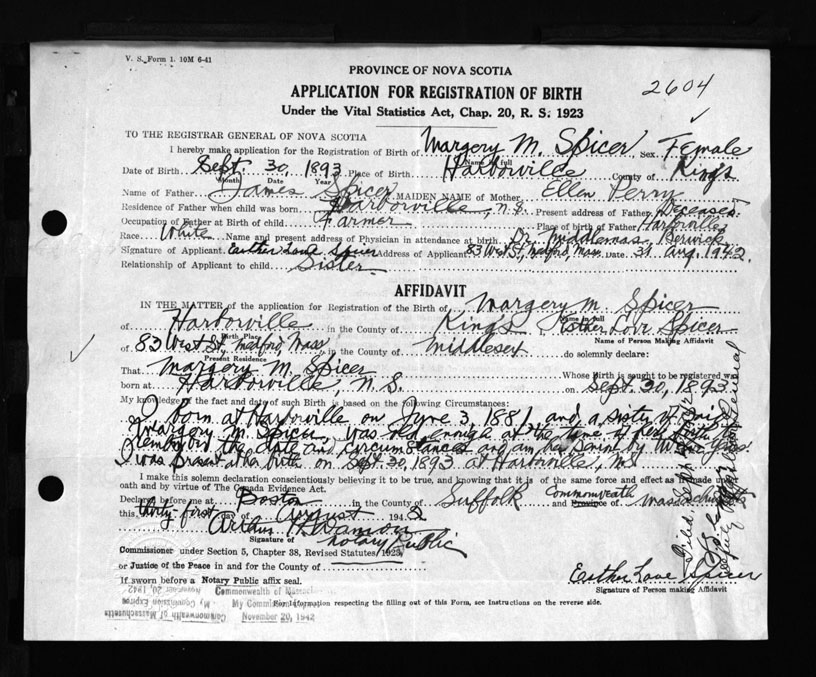 V. S. Form 1. 10M 6-41
2604
PROVINCE OF NOVA SCOTIA
APPLICATION FOR REGISTRATION OF BIRTH
Under the Vital Statistics Act, Chap. 20, R. S. 1923
TO THE REGISTRAR GENERAL OF NOVA SCOTIA
I hereby make application for the Registration of Birth of Margery M. Spicer Sex Female
Name in full
Date of Birth Sept. 30, 1893 Place of Birth Harborville County of Kings
Month Date Year
Name of Father James Spicer MAIDEN NAME of Mother Ellen Perry
Residence of Father when child was born Harborville, N.S. Present address of Father Deceased
Occupation of Father at Birth of child Farmer Place of birth of Father Harborville
Race White Name and present address of Physician in attendance at birth Dr. Middlemas, Berwick
Signature of Applicant Esther Love Spicer Address of Applicant 83 West St, Medford, Mass. Date 31 Aug. 1942.
Relationship of Applicant to child Sister
AFFIDAVIT
IN THE MATTER of the application for Registration of the Birth of Margery M. Spicer
Name in full
of Harborville in the County of Kings Esther Love Spicer
Birth Place Name of Person Making Affidavit
of 83 West St, Medford, Mass in the County of Middlesex do solemnly declare:
Present Residence
That Margery M. Spicer Whose Birth is sought to be registered was
born at Harborville, N.S. on Sept. 30, 1893
My knowledge of the fact and date of such Birth is based on the following Circumstances:
I born at Harborville on June 3, 1881 and a sister of said
Margery M. Spicer, was old enough at the time of her birth to
remember the date and circumstances and am her Senior by
I was present at her birth on Sept. 30, 1893 at Harborville, N.S.
I make this solemn declaration conscientiously believing it to be true, and knowing that it is of the same force and effect as if made upon
oath and by virtue of The Canada Evidence Act.
Declared before me at Boston in the County of Suffolk Commonwealth and Province of Massachusetts
this thirty-first day of August 1942
Arthur H. Damon
Signature of Notary Public
Commissioner under Section 5, Chapter 38, Revised Statutes, 1923,
or Justice of the Peace in and for the County of
If sworn before a Notary Public affix seal.
Esther Love Spicer
Signature of Person making Affidavit
For information respecting the filling out of this Form, see Instructions on the reverse side.
Commonwealth of Massachusetts
My Commission Expires
November 20, 1942
Commonwealth of Massachusetts
My Commission Expires
November 20, 1942
Filed Sept
Deputy Registrar General